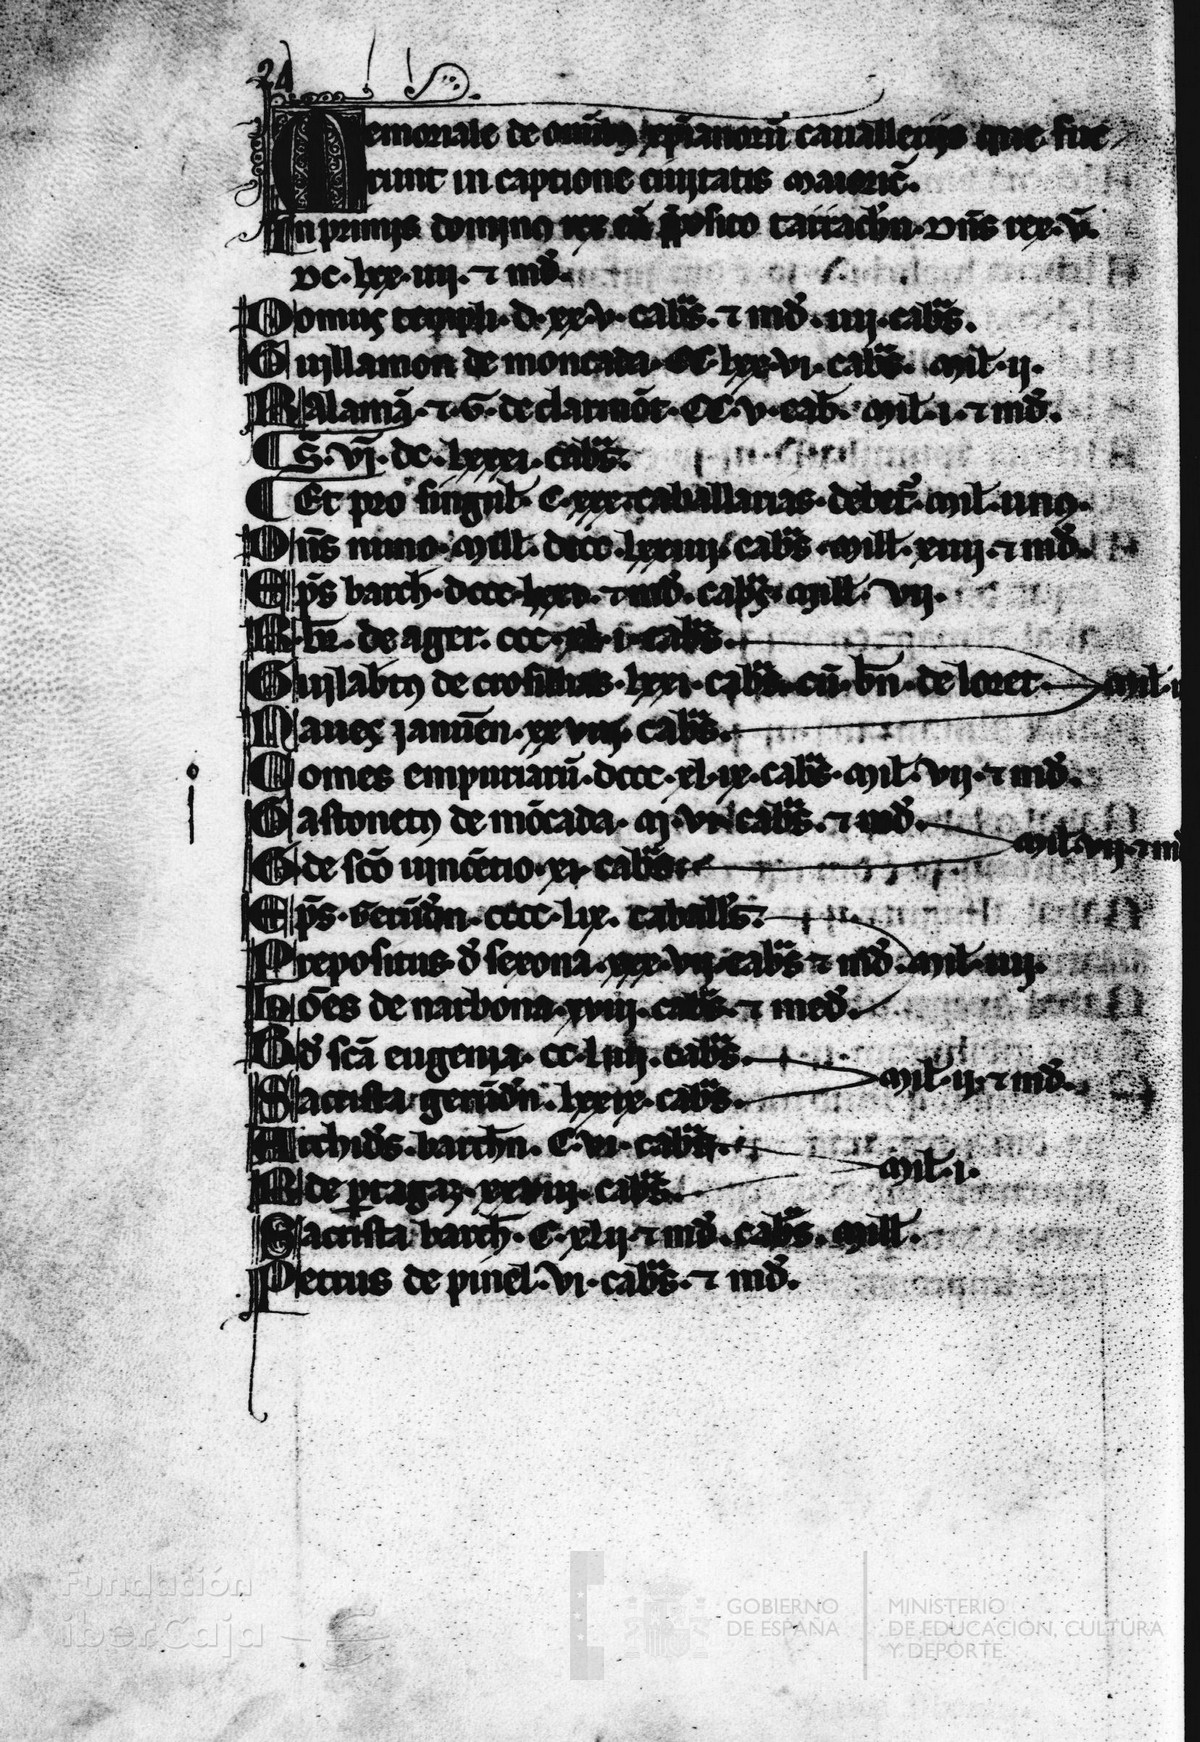 24
Memoriale de om̄ibꝫ xp̄ianorū cauallerijs que fue
runt in captione ciuitatis maioric̄.
In primis domino rex cū p̄posito tarrachn̄. Dn̄s rex. v.
dc. lxx. iiij. ⁊ md̄.
Domus templi. d. xxv. cabs̄. ⁊ md̄. iiij. cabs̄.
Guillamon de moncada. cc. lxx. vi. cabs̄. mil̄. ij.
Ralamā. ⁊. G. de clarmōt. cc. v. cab̄. mil̄. i. ⁊ md̄.
S̄. vj̄. dc. lxxxi. cabs̄.
Et pro singul̄. c. xxx. caballarias. debet̄. mil̄. uno.
Dn̄s nuno. mill̄. dccc. lxxiiij. cabs̄. mill̄. xiiij. ⁊ md̄.
Ep̄s barch̄. dccc. lxxi. ⁊ md̄. cabs̄. mill̄. vij.
R. br̄. de ager. ccc. xl. i. cabs̄.
Guilabtꝰ de crosillias. lxxi. cabs̄. cū. bn̄. de loret. mil̄.
Naueç januēn. xxviij. cabs̄.
Comes empuriarū. dccc. xl. ix. cabs̄. mil̄. vij. ⁊ md̄.
Gastonetꝰ de mōcada. vi. cabs̄. ⁊ md̄. mil̄. vij. ⁊ md̄
G. de scō uincētio. xi. cabs̄.
Ep̄s. gerūdn̄. cccc. lix. caballs̄.
Prepositus d̄ serona. xxx. vij. cabs̄ ⁊ md̄. mil̄. iiij.
Hōēs de narbona. xviij. cabs̄. ⁊ med̄.
G. d̄ scā eugenia. cc. liiij. cabs̄. mil̄. ij. ⁊ md̄.
Sacrista gerūdn̄. lxxix. cabs̄.
Archids̄. barchn̄. c. vi. cabs̄. mil̄. i.
R. de ꝑragaz. xxviij. cabs̄.
Sacrista barch̄. c. xlij. ⁊ md̄. cabs̄. mill̄.
Petrus de pinel. vi. cabs̄. ⁊ md̄.
Fundación
iberCaja
GOBIERNO
DE ESPAÑA
MINISTERIO
DE EDUCACIÓN, CULTURA
Y DEPORTE